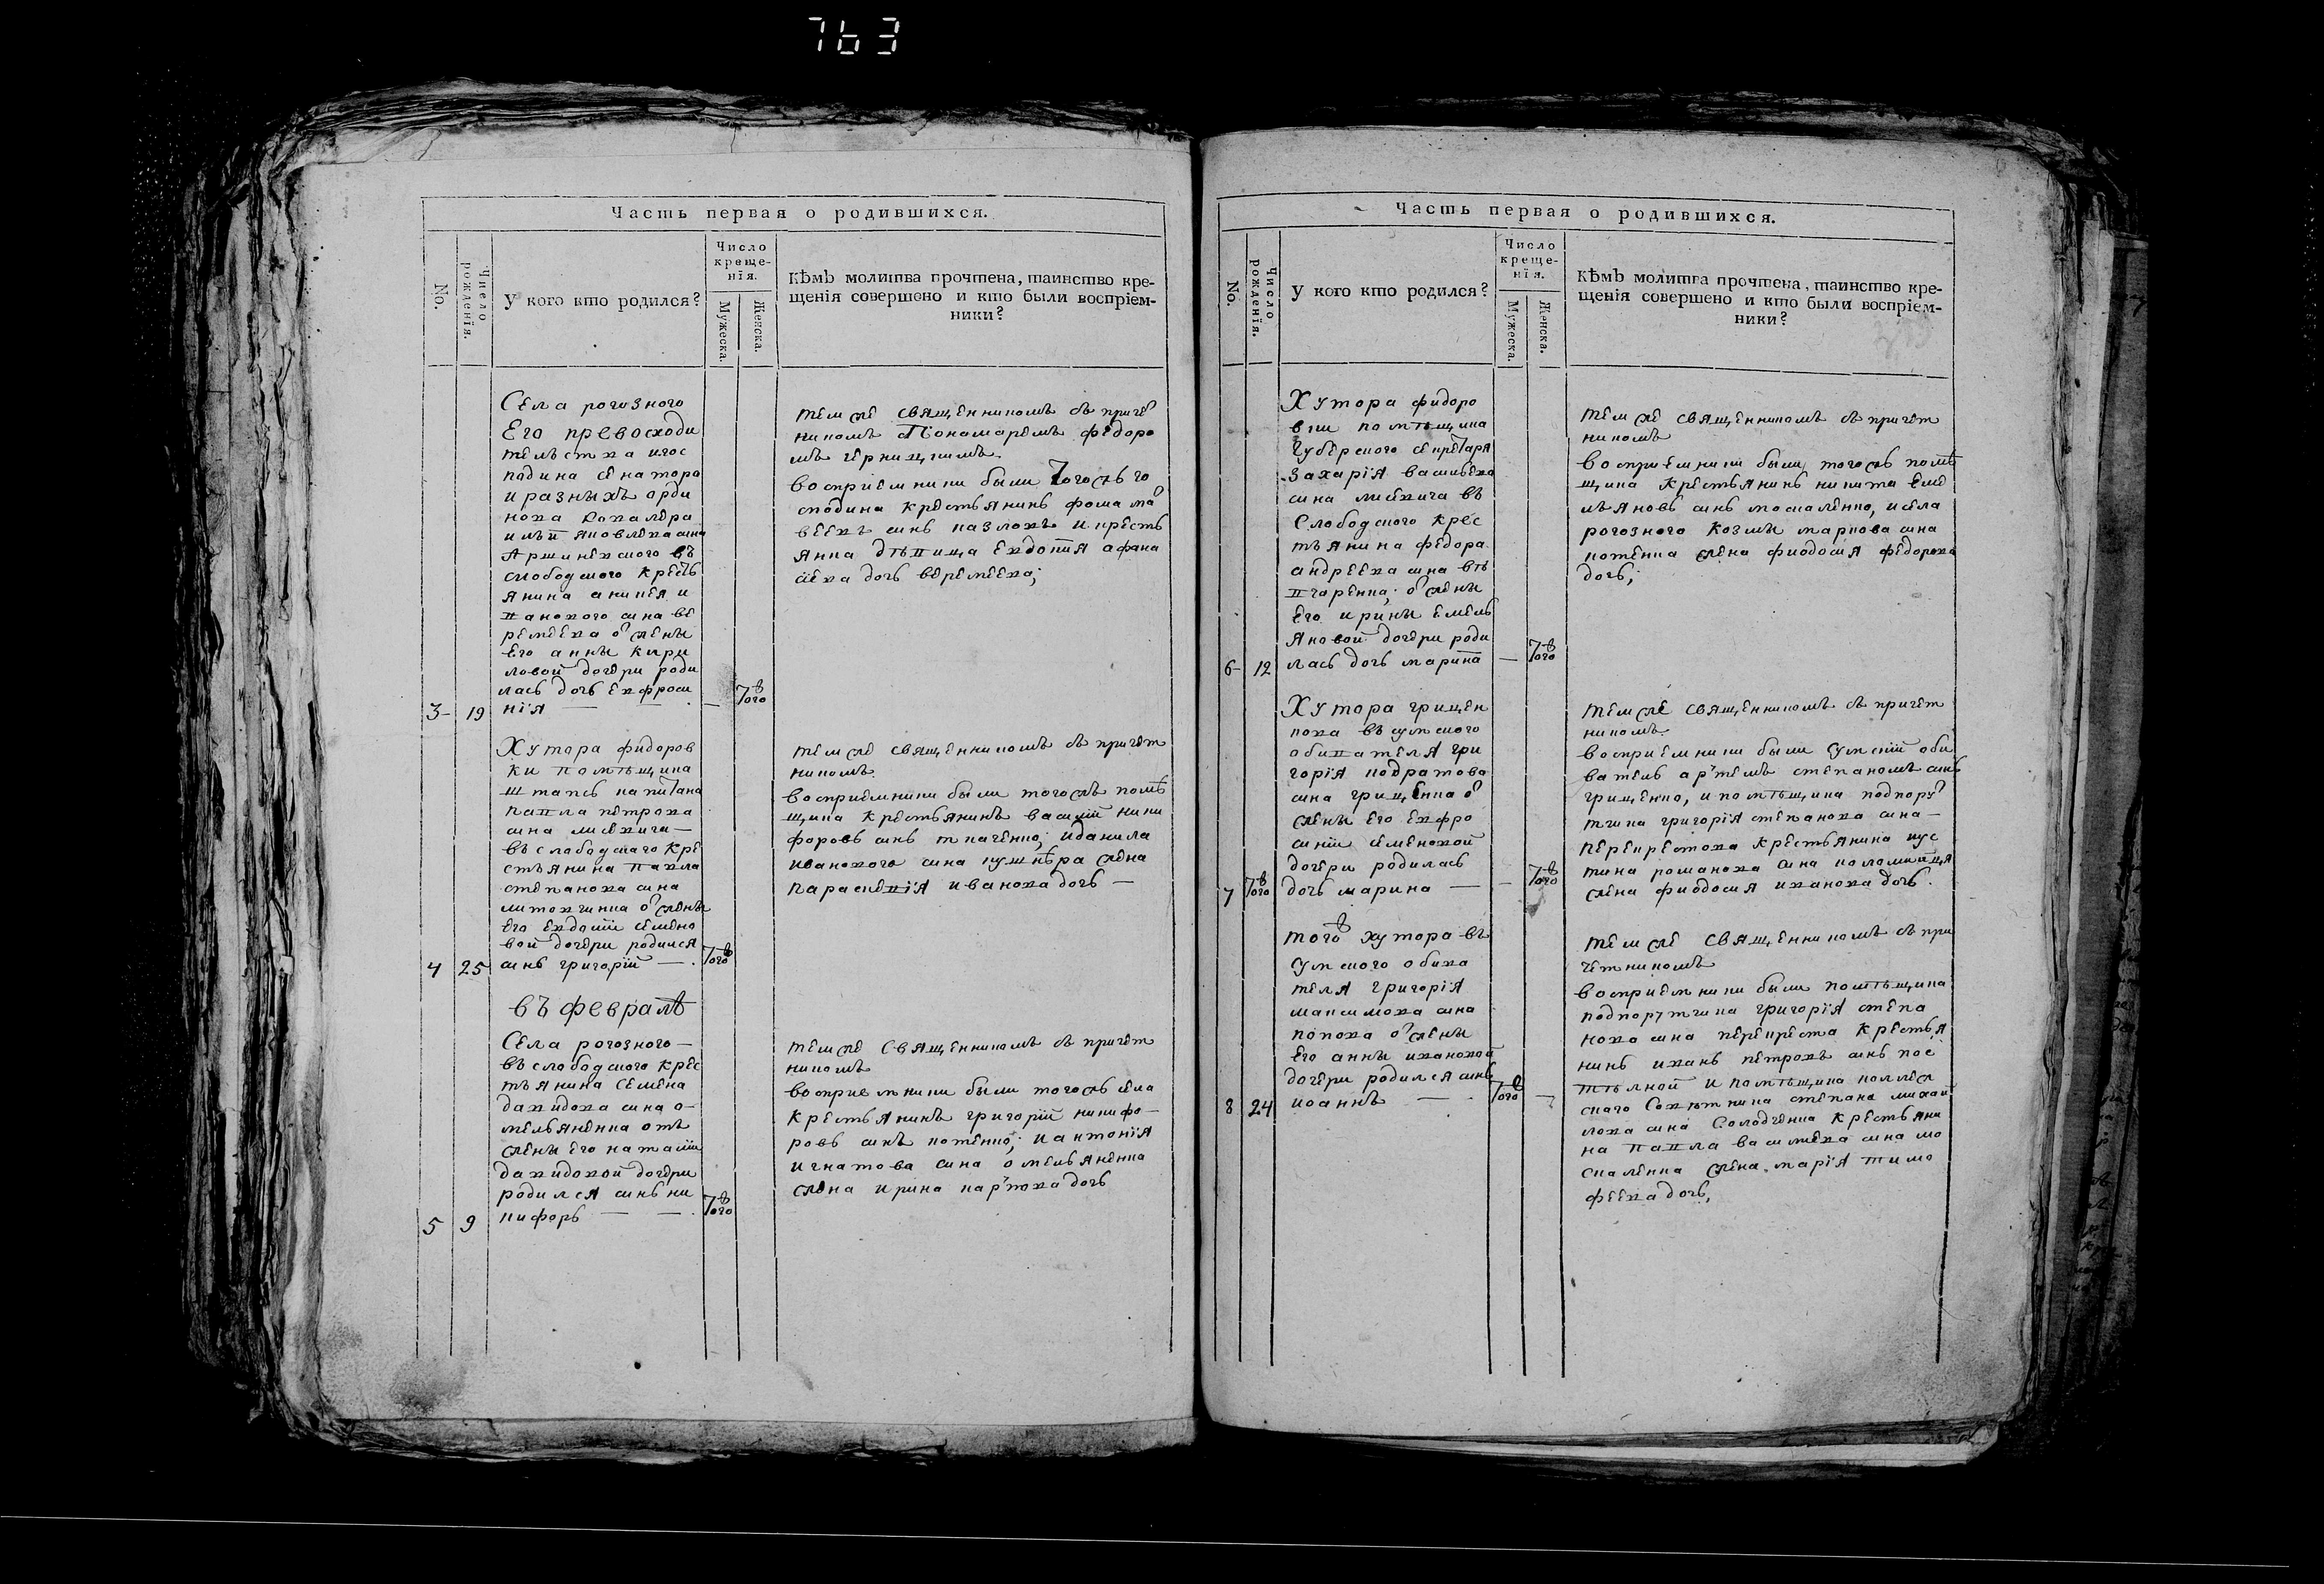 763
Часть первая о родившихся.
No.
Число рожденїя.
У кого кто родился?
Число креще-нїя.
Мужеска.
Женска.
Кѣмъ молитва прочтена, таинство кре-
щенїя совершено и кто были воспрїем-
ники?
Села рогозного
Его превосходи
телства игос
подина сенатора
и разныхъ орди
нова кавалера
слободского кресть
янина
ремеева отъ жены
Его анны кири
ловой дочери роди
лась дочь евфроси
3 - 19 нїя — — того
темже священникомъ съ причет
никомъ Пономаремъ федоро
мъ чернишимъ
восприемники были тогожъ го
сподина крестьянинъ фома ма
веевъ синъ павловъ и кресть
янка дѣвица евдокия афана
сиева дочь веремеева;
Хутора фидоров
ки помѣщика
штапсъ капитана
павла петрова
сина лисевича —
въ слободскаго кре
стьянина павла
степанова сина
литовчинка отъ жены
его евдокии семено
вой дочери родился
4 25 синъ григорїй — того
темже священникомъ съ причет
никомъ
восприемники были тогожъ помѣ
щика крестьянинъ василий ники
форовъ синъ ткаченко; и данила
иванового сина кушнѣра жена
параскевїя иванова дочь —
въ февралѣ
Села рогозного —
въ слободского крес
тьянина семена
давидова сина о-
мельяненка отъ
жены его наталии
давидовой дочери
родился синъ ни
5 9 кифоръ — — того
темже священникомъ съ причет
никомъ
восприемники были тогожъ села
крестьянинъ григорїй никифо-
ровъ синъ котенко; и антонїя
игнатова сина омельяненка
жена ирина карпова дочь
Часть первая о родившихся.
No.
Число рожденїя.
У кого кто родился?
Число креще-нїя.
Мужеска.
Женска.
Кѣмъ молитва прочтена, таинство кре-
щенїя совершено и кто были воспрїем-
ники?
Хутора фидоро
вки помѣщика
губерского секретаря
захарїя васильева
сина лисевича въ
слободского крес
тьянина федора
андреева сина
отъ жены
Его ирины емель
яновой дочери роди
6- 12 лась дочь марина — того
темже священникомъ съ причет
никомъ
восприемники были тогожъ помѣ
щика крестьянинъ никита емел
ьяновъ синъ москаленко, и села
рогозного козми маркова сина
котенка жена фиодосия федорова
дочь;
Хутора грищен
кова въ сумского
обивателя гри
горїя кодратова
сина грищенка отъ
жены его евфро
синїи семеновой
дочери родилась
7 того дочь марина — — того
темже священникомъ съ причет
никомъ
восприемники были сумский оби
ватель артемъ степановъ синъ
грищенко, и помѣщика подпору
тчика григорїя степанова сина —
перекрестова крестьянина кус
тина романова сина коломийця
жена фиодосия иванова дочь.
того хутора въ
сумского обива
теля григорїя
максимова сина
попова отъ жены
Его анны ивановой
дочери родился синъ
8 24 иоаннъ — того —
темже священникомъ съ при
четникомъ
восприемники были помѣщика
подпорутчика григорїя степа
нова сина перекреста крестья
нинъ иванъ петровъ синъ
и помѣщика коллеж
скаго Совѣтника степана михай
лова сина Солодченка крестьяни
на павла василиева сина мо
скаленка жена марїя тимо
феева дочь,